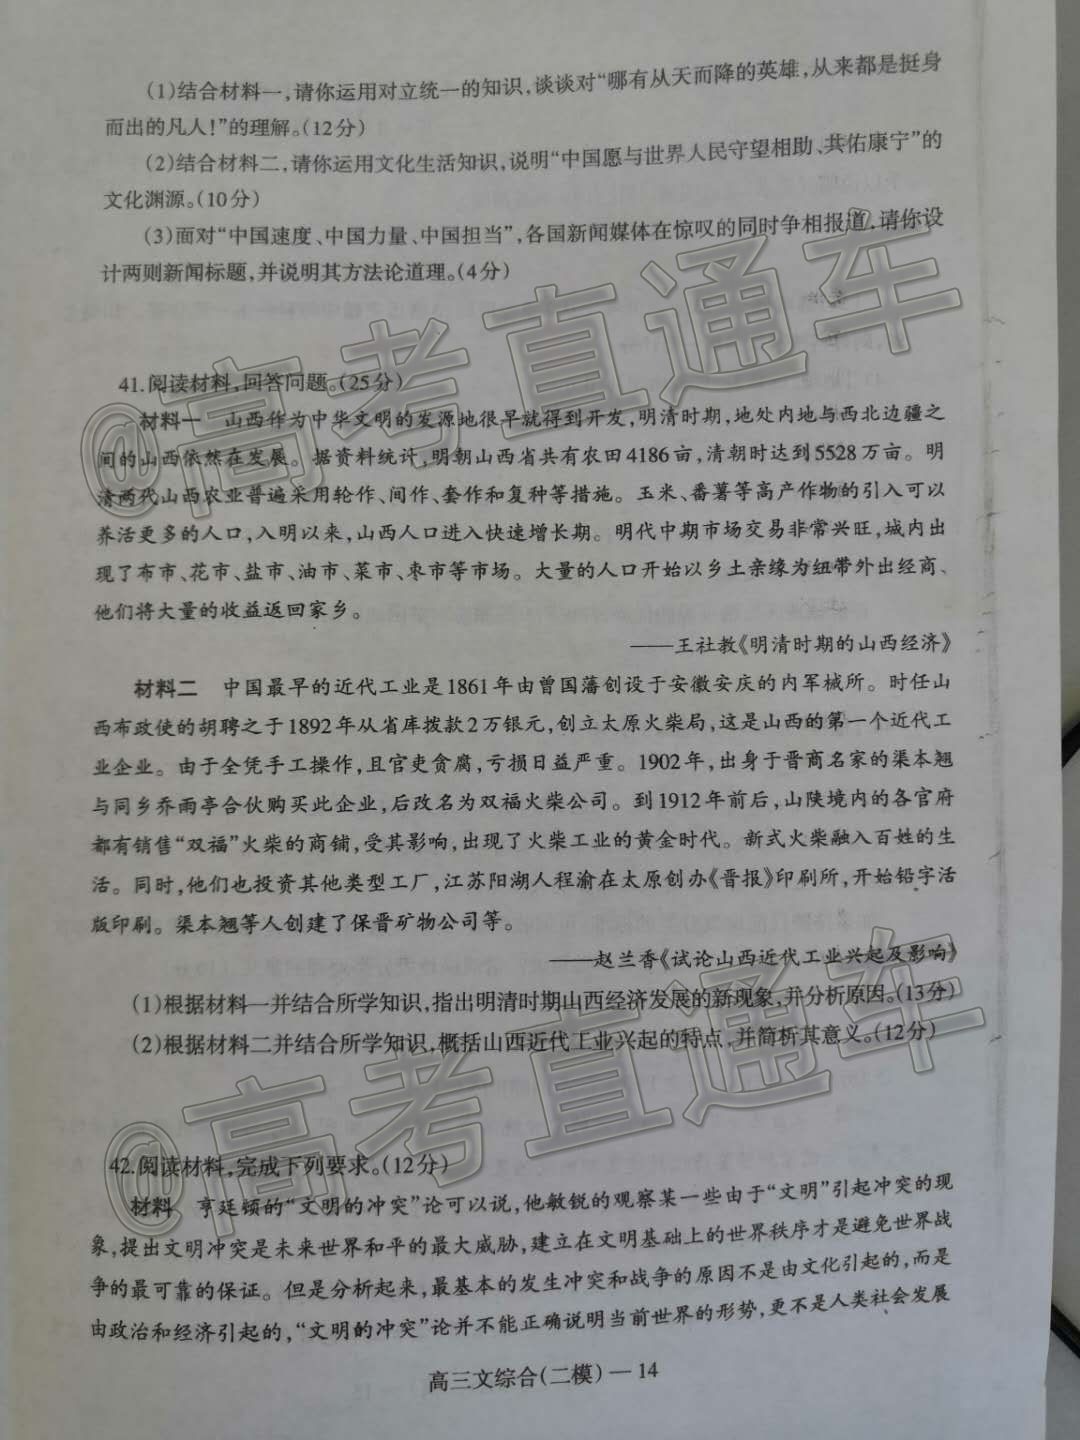 (1)结合材料一,请你运用对立统一的知识,谈谈对“哪有从天而降的英雄,从来都是挺身
而出的凡人!”的理解。(12分)
(2)结合材料二,请你运用文化生活知识,说明“中国愿与世界人民守望相助、共佑康宁”的
文化渊源。(10分)
(3)面对“中国速度、中国力量、中国担当”,各国新闻媒体在惊叹的同时争相报道,请你设
计两则新闻标题,并说明其方法论道理。(4分)
@高考直通车
41.阅读材料,回答问题。(25分)
材料一 山西作为中华文明的发源地很早就得到开发,明清时期,地处内地与西北边疆之
间的山西依然在发展。据资料统计,明朝山西省共有农田4186亩,清朝时达到5528万亩。明
清两代山西农业普遍采用轮作、间作、套作和复种等措施。玉米、番薯等高产作物的引入可以
养活更多的人口,入明以来,山西人口进入快速增长期。明代中期市场交易非常兴旺,城内出
现了布市、花市、盐市、油市、菜市、枣市等市场。大量的人口开始以乡土亲缘为纽带外出经商、
他们将大量的收益返回家乡。
——王社教《明清时期的山西经济》
材料二 中国最早的近代工业是1861年由曾国藩创设于安徽安庆的内军械所。时任山
西布政使的胡聘之于1892年从省库拨款2万银元,创立太原火柴局,这是山西的第一个近代工
业企业。由于全凭手工操作,且官吏贪腐,亏损日益严重。1902年,出身于晋商名家的渠本翘
与同乡乔雨亭合伙购买此企业,后改名为双福火柴公司。到1912年前后,山陕境内的各官府
都有销售“双福”火柴的商铺,受其影响,出现了火柴工业的黄金时代。新式火柴融入百姓的生
活。同时,他们也投资其他类型工厂,江苏阳湖人程渝在太原创办《晋报》印刷所,开始铅字活
版印刷。渠本翘等人创建了保晋矿物公司等。
——赵兰香《试论山西近代工业兴起及影响》
(1)根据材料一并结合所学知识,指出明清时期山西经济发展的新现象,并分析原因。(13分)
(2)根据材料二并结合所学知识,概括山西近代工业兴起的特点,并简析其意义。(12分)
@高考直通车
42.阅读材料,完成下列要求。(12分)
材料 亨廷顿的“文明的冲突”论可以说,他敏锐的观察某一些由于“文明”引起冲突的现
象,提出文明冲突是未来世界和平的最大威胁,建立在文明基础上的世界秩序才是避免世界战
争的最可靠的保证。但是分析起来,最基本的发生冲突和战争的原因不是由文化引起的,而是
由政治和经济引起的,“文明的冲突”论并不能正确说明当前世界的形势,更不是人类社会发展
高三文综合(二模)—14